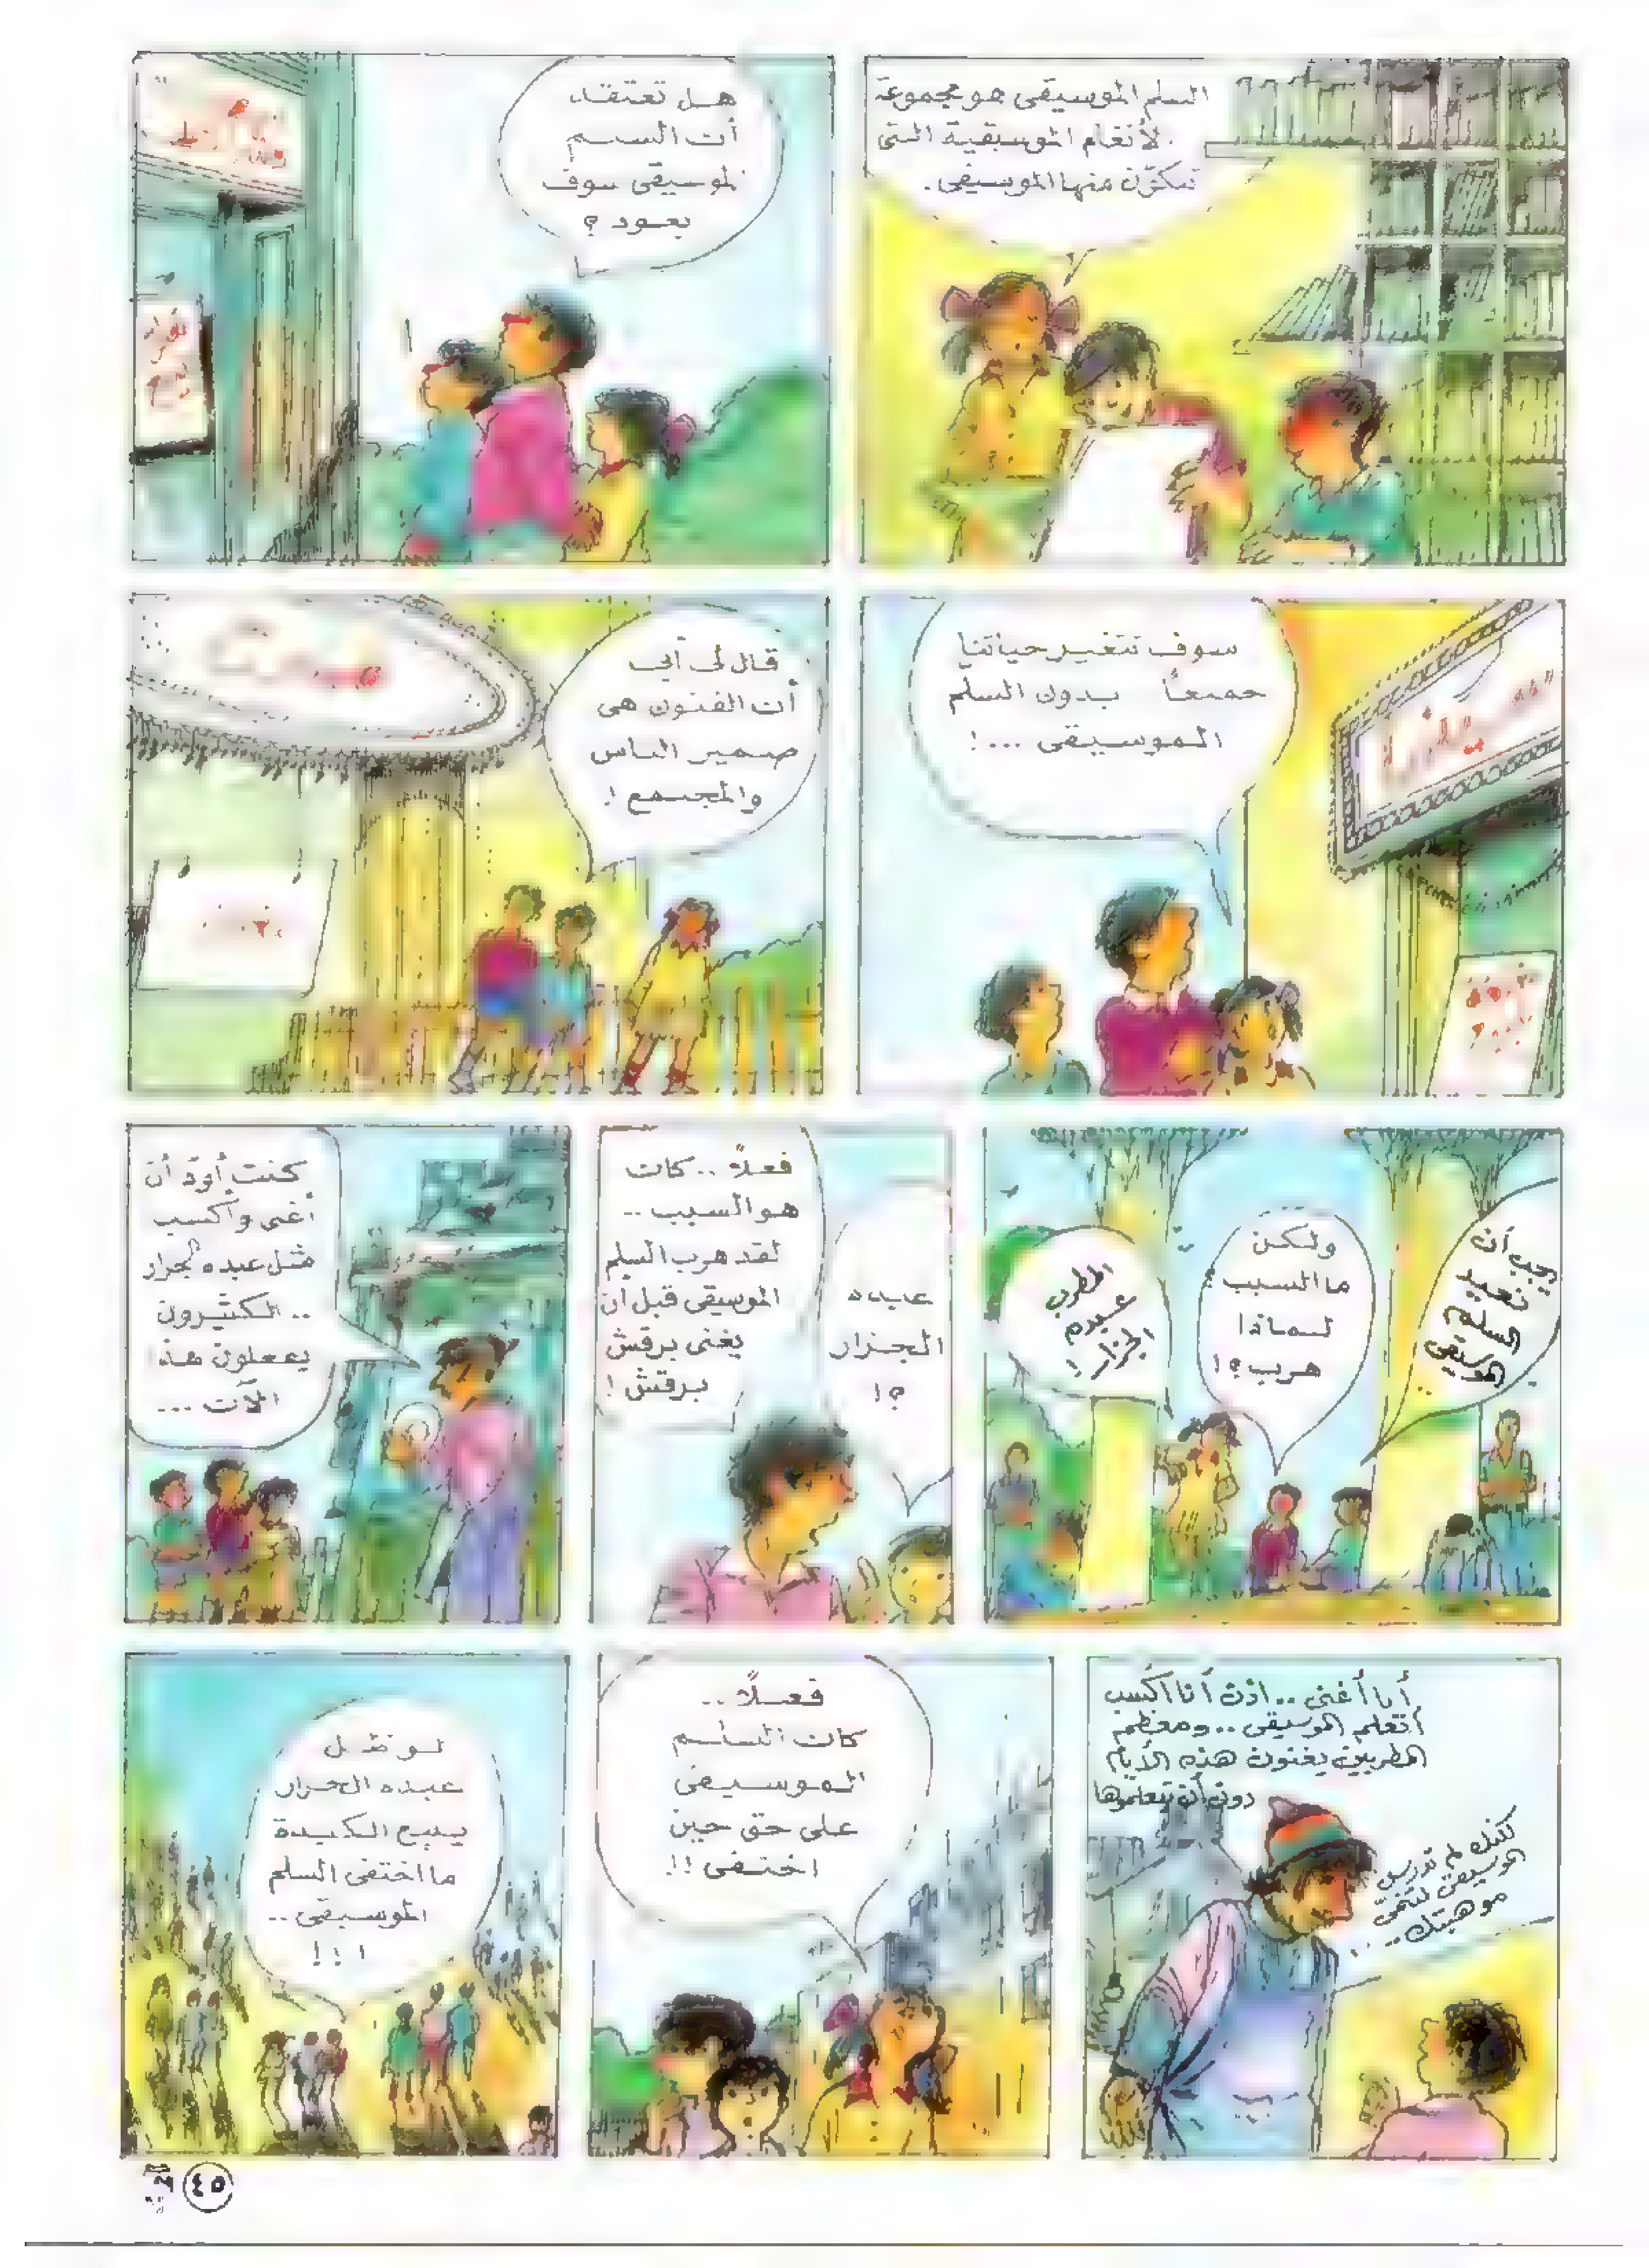 السلم الموسيقى هو مجموعة
الأنغام الموسيقية التى
تتكوّن منها الموسيقى.
هل تعتقد
أن السلم
الموسيقى سوف
يعود ؟
سوف تتغير حياتنا
جميعاً بدون السلم
الموسيقى ...!
قال لى أبى
أن الفنون هى
ضمير الناس
والمجتمع !.
يجب أن
نعيد
السلم
الموسيقى ..
ولكن
ما السبب ؟
لماذا
هرب ؟!
المطرب
عبده
الجزار !
عبده
الجزار
؟!
فعلاً .. كان
هو السبب ..
لقد هرب السلم
الموسيقى قبل أن
يغنى برقش
برقش !
كنت أودّ أن
أغنى وأكسب
مثل عبده الجزار
.. الكثيرون
يفعلون هذا
الآن ...
أنا أغنى .. اذن أنا أكسب
أتعلم الموسيقى .. ومعظم
المطربين يغنون هذه الأيام
دون أن يتعلموها
لكنك لم تدرس
الموسيقى لتنمّى
موهبتك ...
فعلاً ..
كان السلم
الموسيقى
على حق حين
اختفى !!
لو ظل
عبده الجزار
يبيع الكبدة
ما اختفى السلم
الموسيقى ..
!!!
٤٥